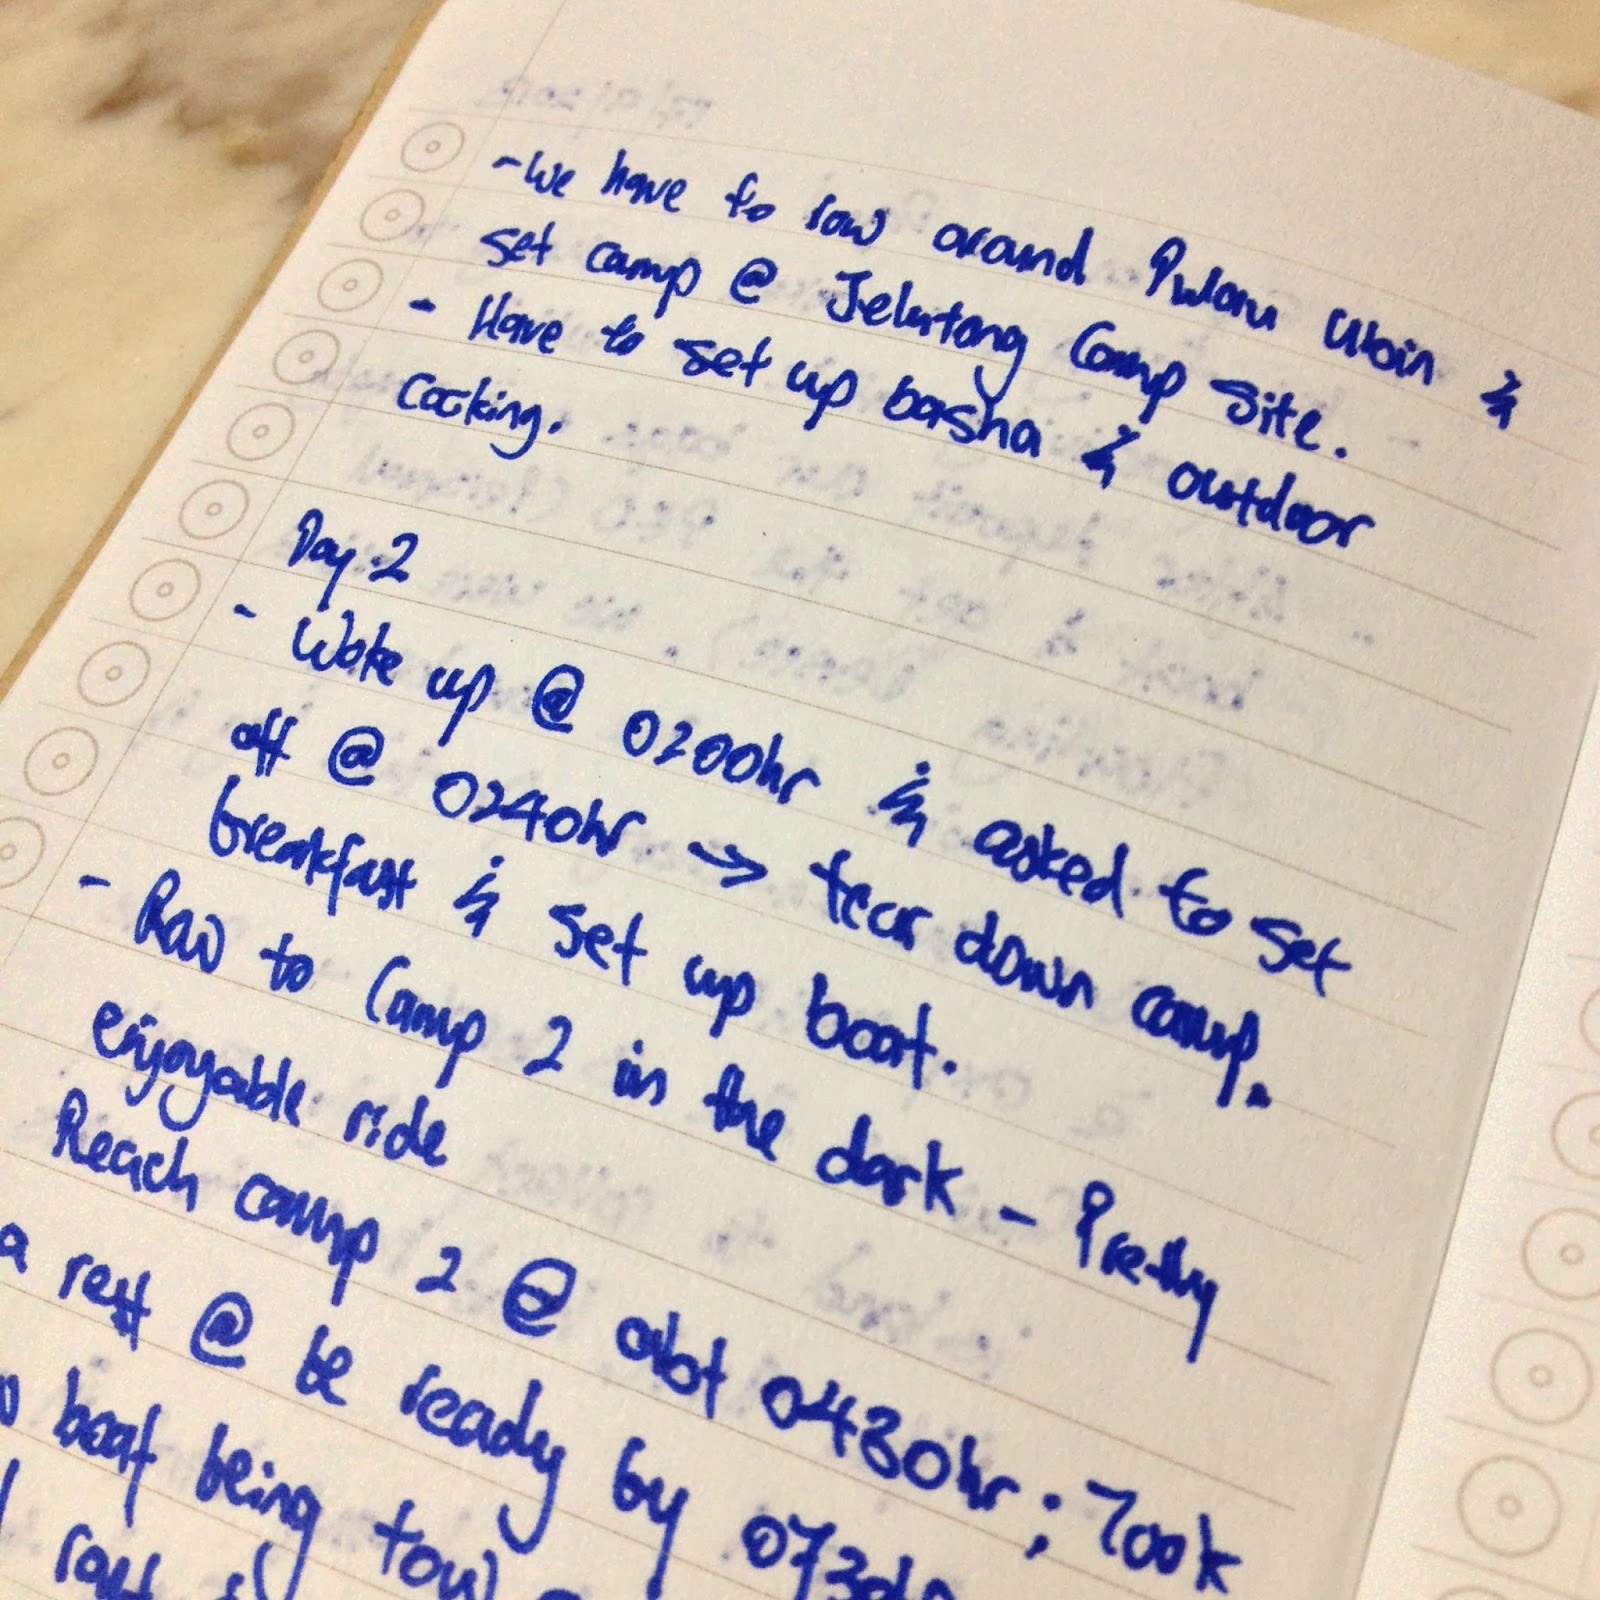 - We have to row around Pulau Ubin &
set camp @ Jelutong Camp Site.
- Have to set up basha & outdoor
cooking.
Day 2
- Woke up @ 0200hr & asked to set
off @ 0240hr → tear down camp.
breakfast & set up boat.
- Row to Camp 2 in the dark - Pretty
enjoyable ride
Reach camp 2 @ abt 0430hr ; Took
a rest @ be ready by
boat being tow